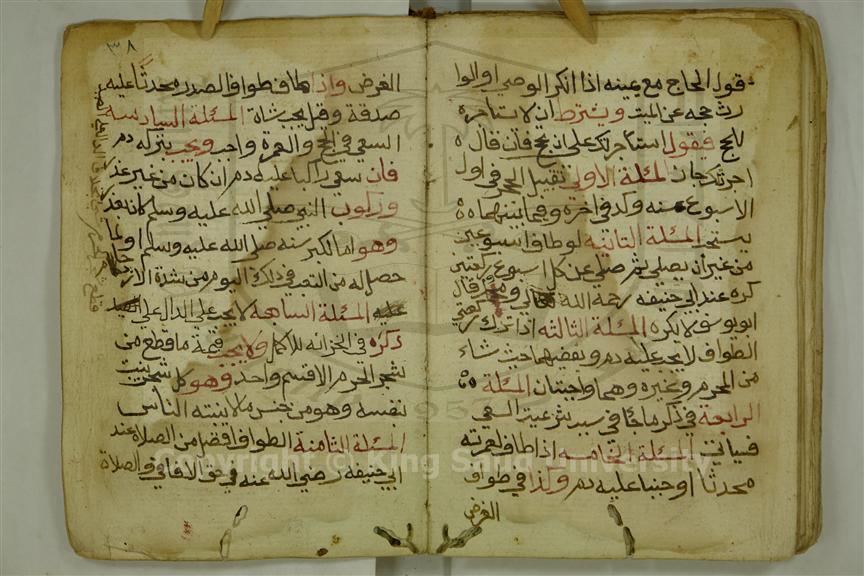 قول الحاج مع يمينه اذا انكر الوصي او الوا
رث حجه عن الميت ويشترط ان لا يستاجره
للحج فيقول استاجرتك على ان تحج فان قال
اجرتك جاز المسئلة الاولى تقبيل الحجر في اول
الاسبوع سنه وكذ في اخره وفيما بينهما
يستحب المسئلة الثانية لو طاف اسبوعين
من غير أن يصلي ثم صلى عن كل اسبوع ركعتين
كره عند ابي حنيفه رحمه الله تعالى وقال
ابو يوسف لا يكره المسئلة الثالثه اذا ترك ركعتي
الطواف لا يجب عليه دم ويقضيهما حيث شاء
من الحرم وغيره وهما واجبتان المسئلة
الرابعة في ذكر ما جا في سبب شرعية السعي
فسياتي المسئلة الخامسه اذا طاف لعمرته
محدثا او جنبا عليه دم وكذا في طواف
الفرض
٣٨
الفرض واذا طاف طواف الصدر محدثا عليه
صدقة وقيل يجب شاة المسئلة السادسه
السعي في الحج والعمرة واجب ويجب بتركه دم
فان سعى راكبا عليه دم ان كان من غير عذر
وركوب النبي صلي الله عليه وسلم كان بعذر
وهو اما لكبر سنه صلى الله عليه وسلم او لما
حصل له من التعب في ذلك اليوم من شدة الازدحام
عليه المسئلة السابعة لا يجب على الدال على
ذكره في الخزانه للاكمل ولا يجب قيمة ما قطع من
شجر الحرم الا قسم واحد وهو كل شجر ينبت
بنفسه وهو من جنس ما لا ينبته الناس
المسئلة الثامنة الطواف افضل من الصلاة عند
ابي حنيفه رضي الله عنه في حق الافاقي والصلاة
Copyright © King Saud University